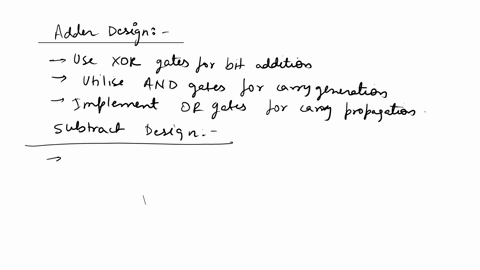 Adder Design:-
→ Use XOR gates for bit addition
→ Utilise AND gates for carry generation
→ Implement OR gates for carry propagation.
Subtract Design.-
→